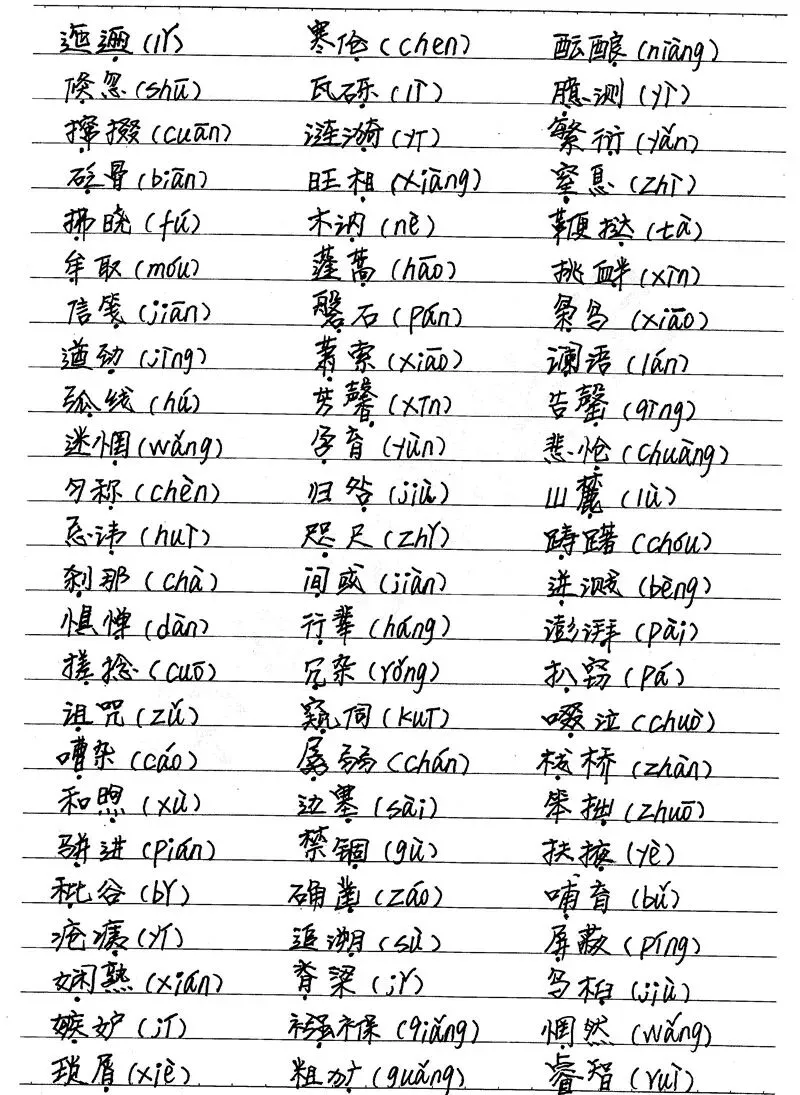 迤逦(lǐ) 寒伧(chen) 酝酿(niàng)
倏忽(shū) 瓦砾(lì) 臆测(yì)
撺掇(cuān) 涟漪(yī) 繁衍(yǎn)
砭骨(biān) 旺相(xiàng) 窒息(zhì)
拂晓(fú) 木讷(nè) 鞭挞(tà)
牟取(móu) 蓬蒿(hāo) 挑衅(xìn)
信笺(jiān) 磐石(pán) 枭鸟(xiāo)
遒劲(jìng) 萧索(xiāo) 谰语(lán)
弧线(hú) 芳馨(xīn) 告罄(qìng)
迷惘(wǎng) 孕育(yùn) 悲怆(chuàng)
匀称(chèn) 归咎(jiù) 山麓(lù)
忌讳(huì) 咫尺(zhǐ) 踌躇(chóu)
刹那(chà) 间或(jiàn) 迸溅(bèng)
惧惮(dàn) 行辈(háng) 澎湃(pài)
搓捻(cuō) 冗杂(rǒng) 扒窃(pá)
诅咒(zǔ) 窥伺(kuī) 啜泣(chuò)
嘈杂(cáo) 孱弱(chán) 栈桥(zhàn)
和煦(xù) 边塞(sài) 笨拙(zhuō)
骈进(pián) 禁锢(gù) 扶掖(yè)
秕谷(bǐ) 确凿(záo) 哺育(bǔ)
疮痍(yí) 追溯(sù) 屏蔽(píng)
娴熟(xián) 脊梁(jǐ) 乌桕(jiù)
嫉妒(jí) 襁褓(qiǎng) 惘然(wǎng)
琐屑(xiè) 粗犷(guǎng) 睿智(ruì)